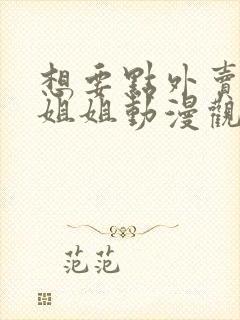 想要點外賣
姐姐動漫觀
范范